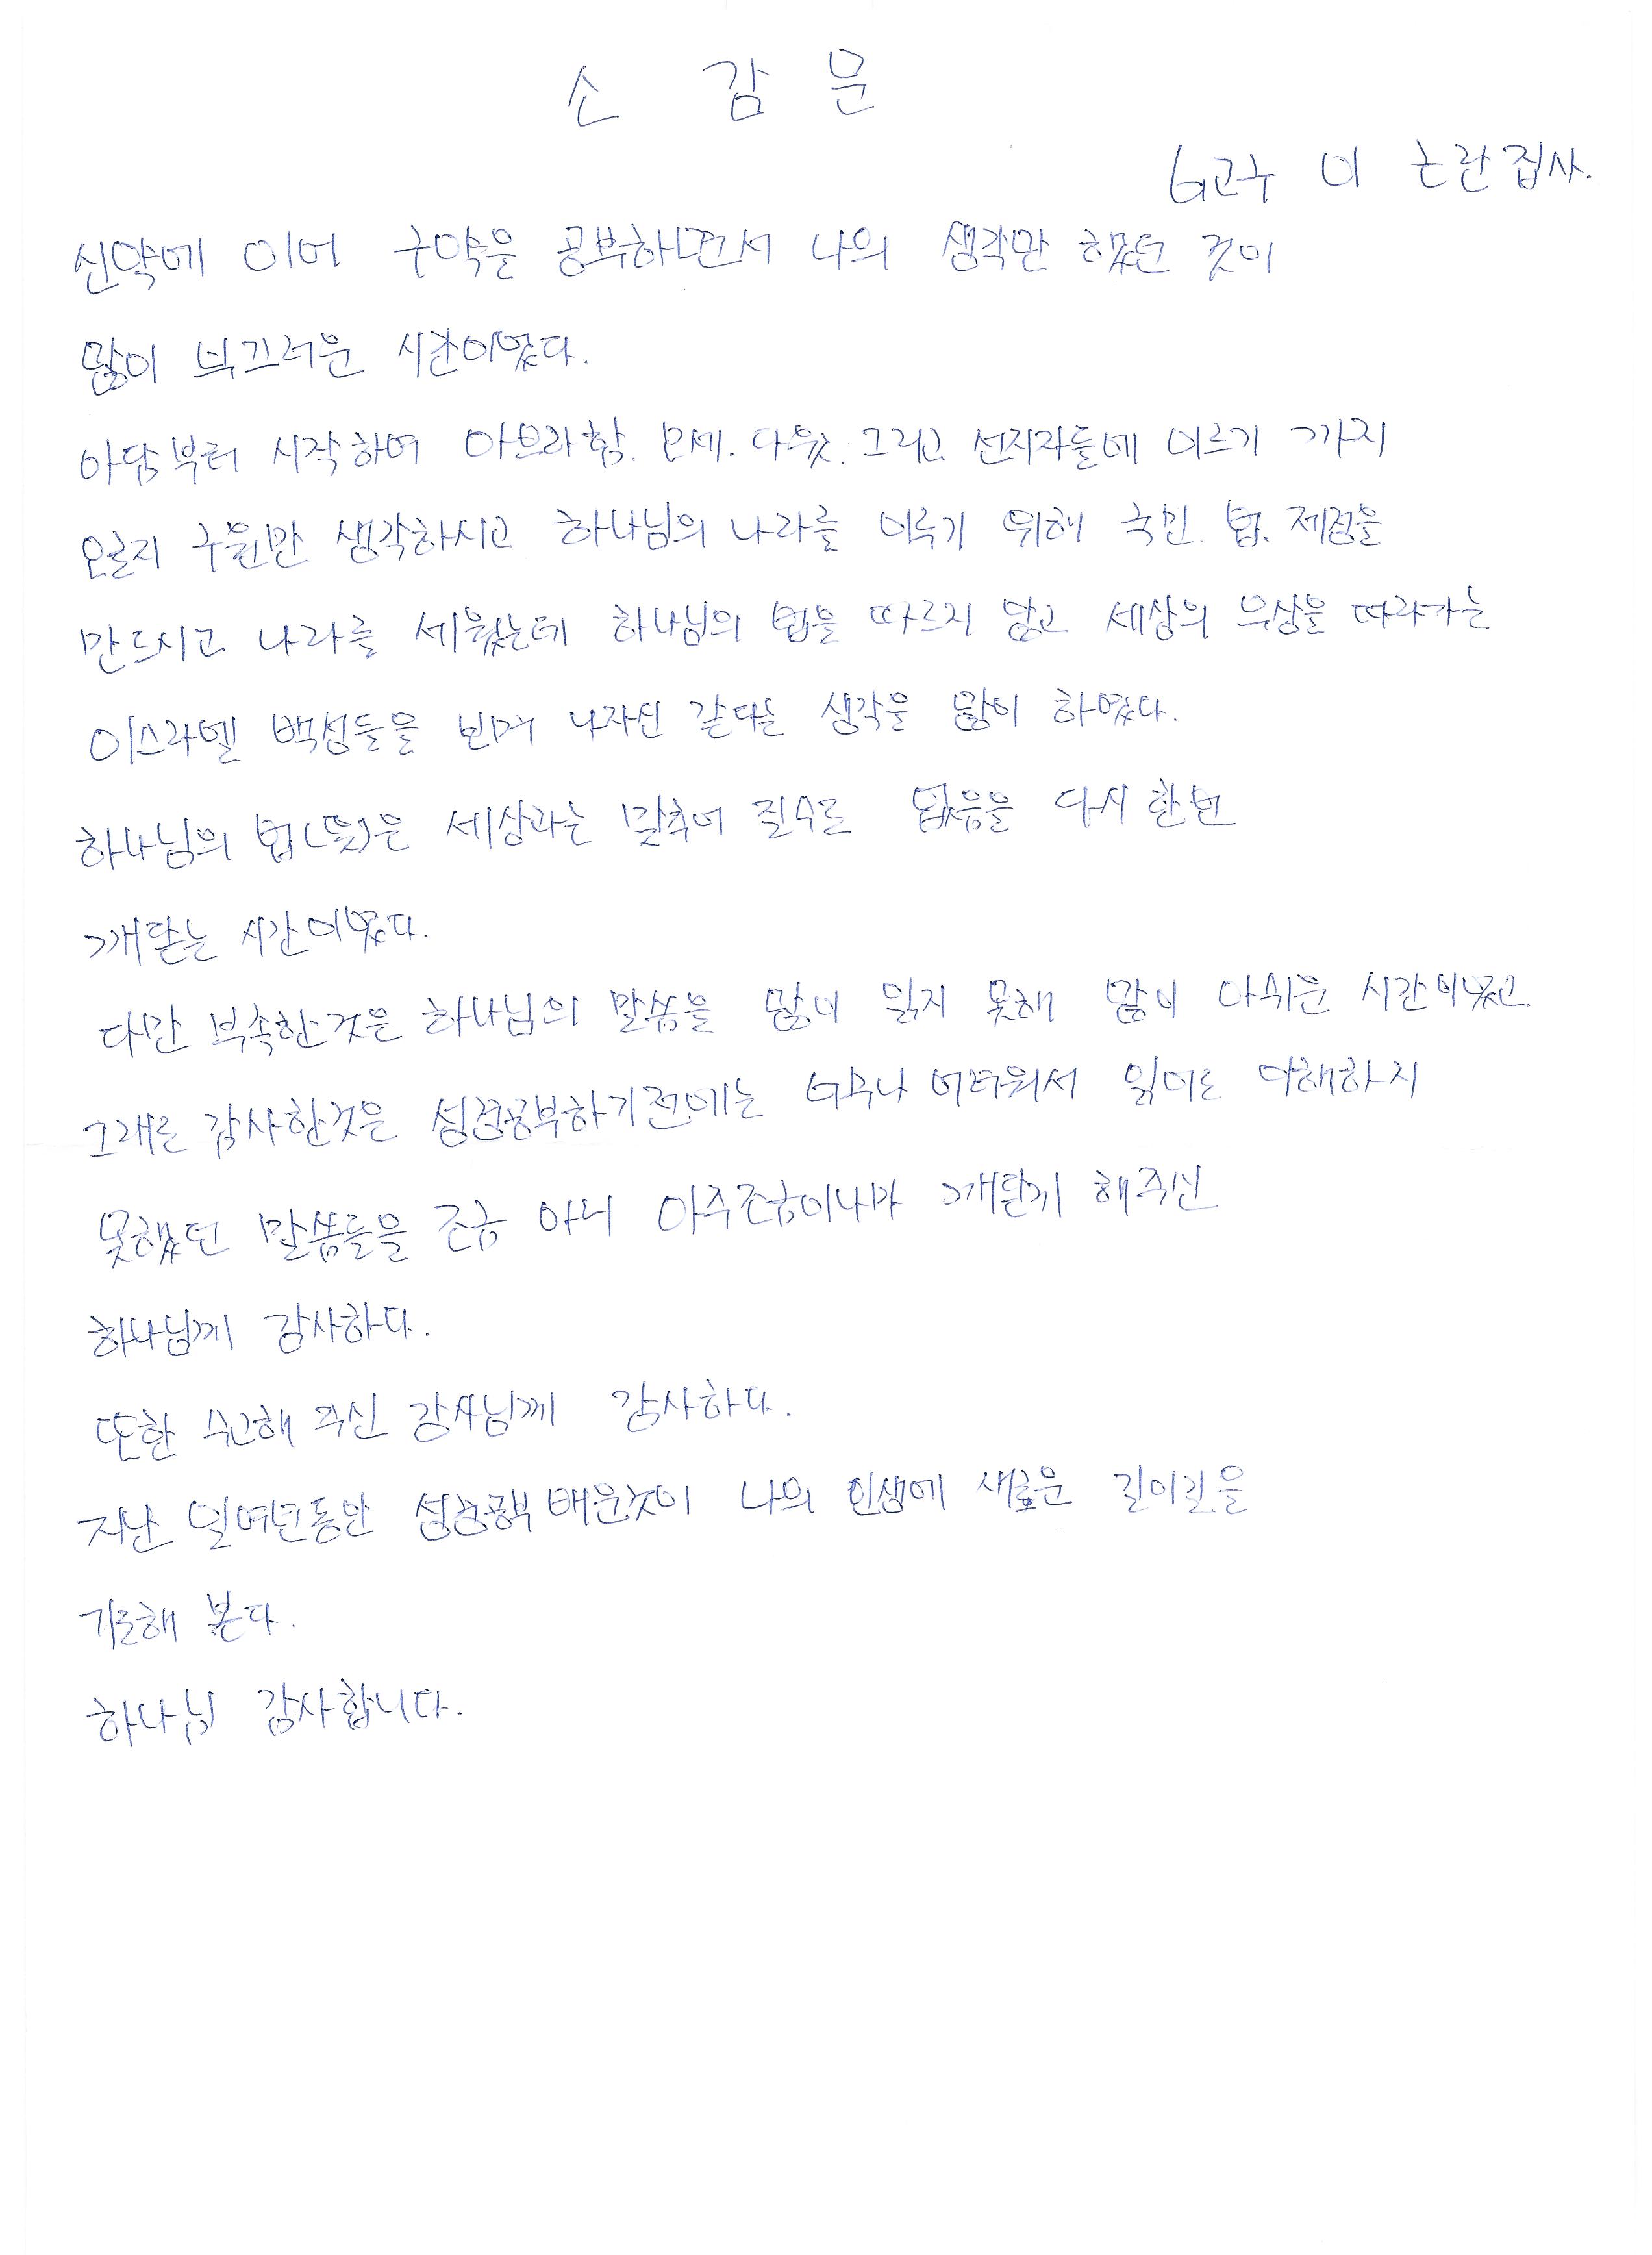 소 감 문
G교구 이 논란집사.
신약에 이어 구약을 공부하면서 나의 생각만 했던 것이
많이 부끄러운 시간이었다.
아담부터 시작하여 아브라함. 모세. 다윗. 그리고 선지자들에 이르기 까지
오로지 구원만 생각하시고 하나님의 나라를 이루기 위해 국민. 법.
만드시고 나라를 세웠는데 하나님의 법을 따르지 않고 세상의 우상을 따라가는
이스라엘 백성들을 보며 나자신 같다는 생각을 많이 하였다.
하나님의 법(뜻)은 세상과는 맞추어 질수도 없음을 다시 한번
깨닫는 시간이었다.
다만 부족한것은 하나님의 말씀을 많이 읽지 못해 많이 아쉬운 시간이었고
그래도 감사한것은 성경공부하기전에는 너무나 어려워서 읽어도 이해하지
못했던 말씀들을 조금 아니 아주조금이나마 깨닫게 해주신
하나님께 감사하다.
또한 수고해 주신 강사님께 감사하다.
지난 일여년동안 성경공부 배운것이 나의 인생에 새로운 길이길을
기도해 본다.
하나님 감사합니다.